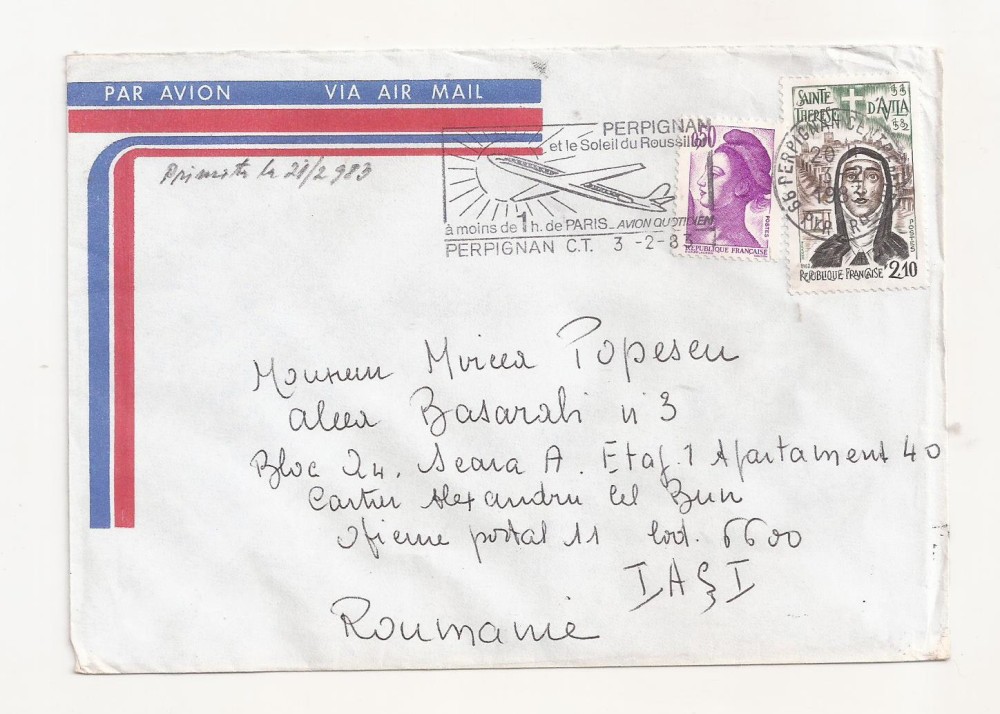 PAR AVION VIA AIR MAIL
Primita la 21/2 983
PERPIGNAN
et le Soleil du Roussillon
à moins de 1h. de PARIS - AVION QUOTIDIEN
PERPIGNAN C.T. 3-2-83
0,50
POSTES
RÉPUBLIQUE FRANÇAISE
SAINTE THÉRÈSE D'AVILA
66 PERPIGNAN
REPUBLIQUE FRANÇAISE 2,10
POSTES
1982
Monsieur Mircea Popescu
Aleea Basarabi n° 3
Bloc 24. Scara A. Etaj 1 Apartament 40
Cartier Alexandru Cel Bun
Oficiue postal 11 Cod. 6600
IAŞI
Roumanie